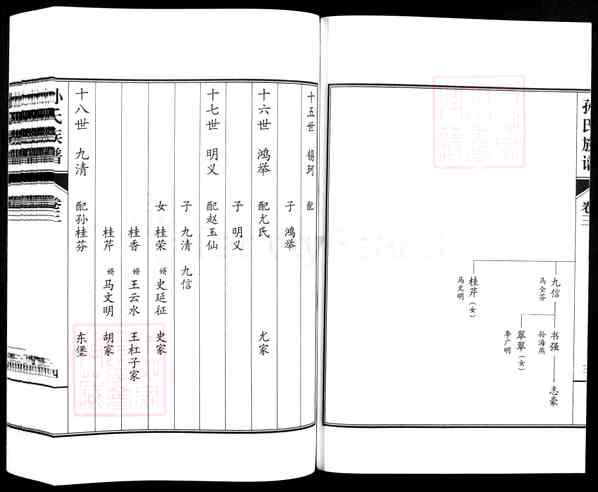 孙氏族谱
卷三
九信
马全芬
书强
孙海燕
志豪
翠翠（女）
李广明
桂芹（女）
马文明
十五世 杨珂 配
子 鸿举
十六世 鸿举 配尤氏 尤家
子 明义
十七世 明义 配赵玉仙
子 九清 九信
女 桂荣 婿 史延征 史家
桂香 婿 王云水 王杠子家
桂芹 婿 马文明 胡家
十八世 九清 配孙桂芬 东堡
孙氏族谱
卷三
四